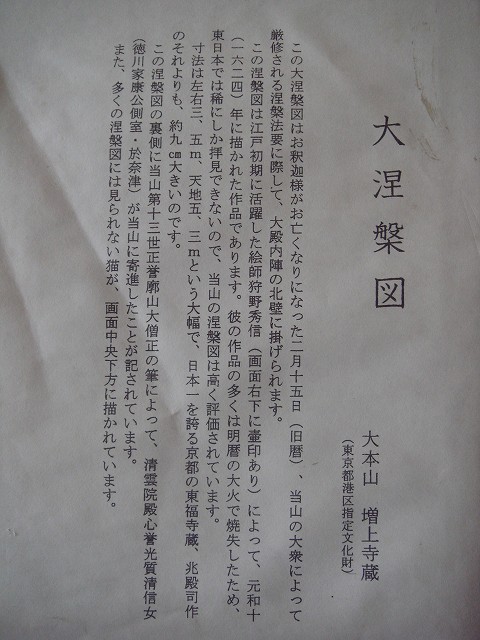 大涅槃図
大本山　増上寺蔵
（東京都港区指定文化財）
この大涅槃図はお釈迦様がお亡くなりになった二月十五日（旧暦）、当山の大衆によって
厳修される涅槃法要に際して、大殿内陣の北壁に掛げられます。
この涅槃図は江戸初期に活躍した絵師狩野秀信（画面右下に壷印あり）によって、元和十
（一六二四）年に描かれた作品であります。彼の作品の多くは明暦の大火で焼失したため、
東日本では稀にしか拝見できないので、当山の涅槃図は高く評価されています。
寸法は左右三、五ｍ、天地五、三ｍという大幅で、日本一を誇る京都の東福寺蔵、兆殿司作
のそれよりも、約九㎝大きいのです。
この涅槃図の裏側に当山第十三世正誉廓山大僧正の筆によって、清雲院殿心誉光質清信女
（徳川家康公側室・於奈津）が当山に寄進したことが記されています。
また、多くの涅槃図には見られない猫が、画面中央下方に描かれています。